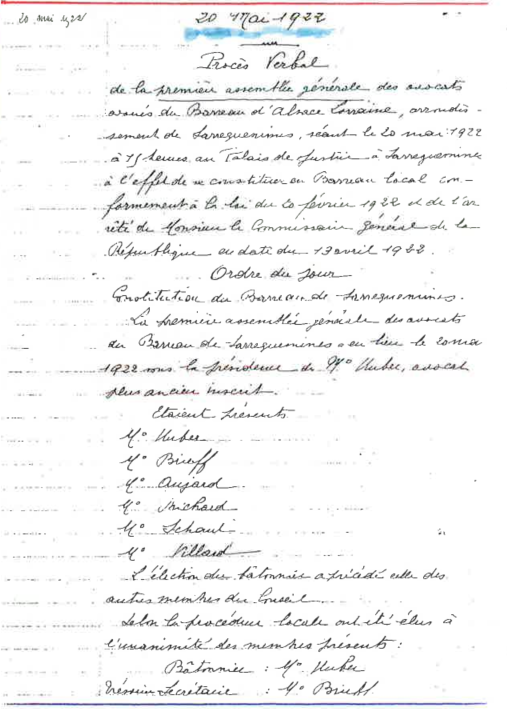 20 mai 1922
20 Mai 1922
Procès Verbal
de la première assemblée générale des avocats
avoués du Barreau d'Alsace Lorraine, arrondis-
sement de Sarreguemines, séant le 20 mai 1922
à 15 heures au Palais de Justice à Sarreguemines
à l'effet de se constituer en Barreau local con-
formement à la loi du 20 février 1922 et de l'ar
rêté de Monsieur le Commissaire général de la
République en date du 13 avril 1922.
Ordre du Jour
Constitution du Barreau de Sarreguemines.
La première assemblée générale des avocats
du Barreau de Sarreguemines a eu lieu le 20 mai
1922 sous la présidence de Me Huber, avocat
plus ancien inscrit.
Etaient présents
Me Huber
Me
Me Aujard
Me Michard
Me Schaul
Me Villard
L'élection des bâtonnier a précédé celle des
autres membres du Conseil.
Selon la procédure locale ont été élus à
l'unanimité des membres présents :
Bâtonnier : Me Huber
Trésorier Secrétaire : Me